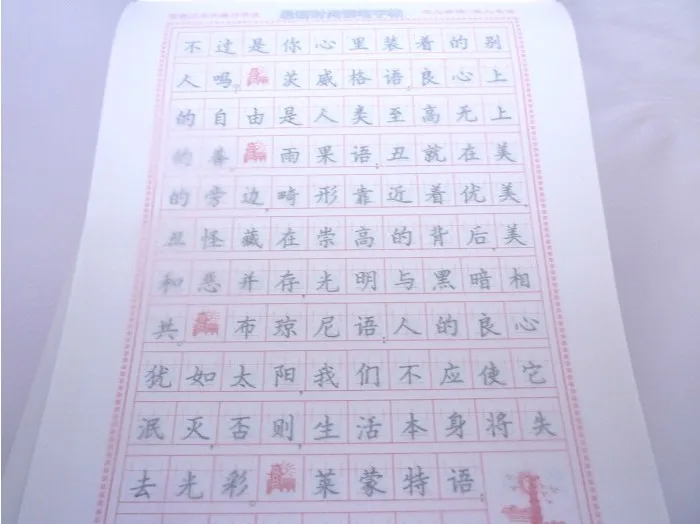 不过是你心里装着的别
人吗。茨威格语，良心上
的自由是人类至高无上
的善。雨果语，丑就在美
的旁边，畸形靠近着优美，
丑怪藏在崇高的背后，美
和恶并存，光明与黑暗相
共。布琼尼语，人的良心
犹如太阳，我们不应使它
泯灭，否则，生活本身将失
去光彩。莱蒙特语，